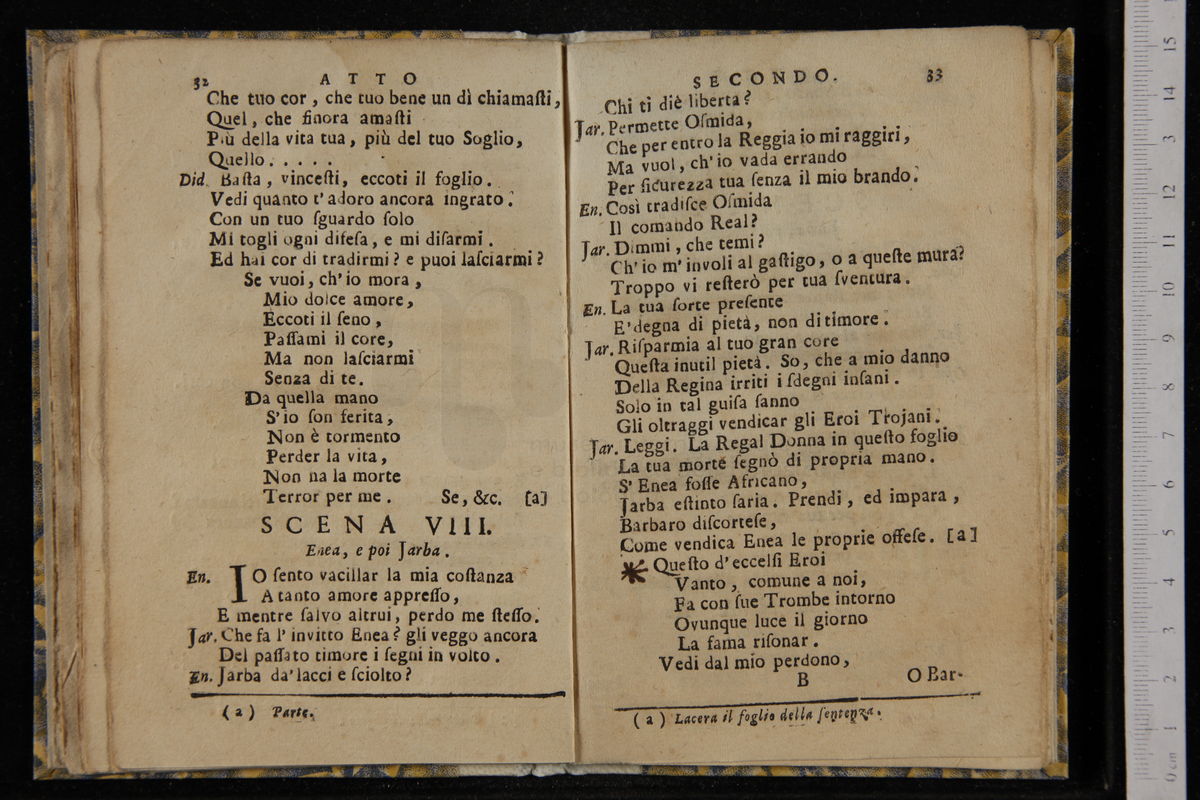 32 ATTO
Che tuo cor, che tuo bene un dì chiamaſti,
Quel, che finora amaſti
Più della vita tua, più del tuo Soglio,
Quello.....
Did. Baſta, vinceſti, eccoti il foglio.
Vedi quanto t'adoro ancora ingrato.
Con un tuo ſguardo ſolo
Mi togli ogni difeſa, e mi diſarmi.
Ed hai cor di tradirmi? e puoi laſciarmi?
Se vuoi, ch'io mora,
Mio dolce amore,
Eccoti il ſeno,
Paſſami il core,
Ma non laſciarmi
Senza di te.
Da quella mano
S'io ſon ferita,
Non è tormento
Perder la vita,
Non na la morte
Terror per me. Se, &c. [a]
SCENA VIII.
Enea, e poi Jarba.
En. IO ſento vacillar la mia coſtanza
A tanto amore appreſſo,
E mentre ſalvo altrui, perdo me ſteſſo.
Jar. Che fa l'invitto Enea? gli veggo ancora
Del paſſato timore i ſegni in volto.
En. Jarba da'lacci e ſciolto?
(a) Parte.
SECONDO. 33
Chi ti diè liberta?
Jar. Permette Oſmida,
Che per entro la Reggia io mi raggiri,
Ma vuol, ch'io vada errando
Per ſicurezza tua ſenza il mio brando.
En. Così tradiſce Oſmida
Il comando Real?
Jar. Dimmi, che temi?
Ch'io m'involi al gaſtigo, o a queſte mura?
Troppo vi reſterò per tua ſventura.
En. La tua ſorte preſente
E'degna di pietà, non di timore.
Jar. Riſparmia al tuo gran core
Queſta inutil pietà. So, che a mio danno
Della Regina irriti i ſdegni inſani.
Solo in tal guiſa ſanno
Gli oltraggi vendicar gli Eroi Trojani.
Jar. Leggi. La Regal Donna in queſto foglio
La tua morte ſegnò di propria mano.
S'Enea foſſe Africano,
Jarba eſtinto ſaria. Prendi, ed impara,
Barbaro diſcorteſe,
Come vendica Enea le proprie offeſe. [a]
Queſto d'eccelſi Eroi
Vanto, comune a noi,
Fa con ſue Trombe intorno
Ovunque luce il giorno
La fama riſonar.
Vedi dal mio perdono,
B O Bar-
(a) Lacera il foglio della ſentenza.